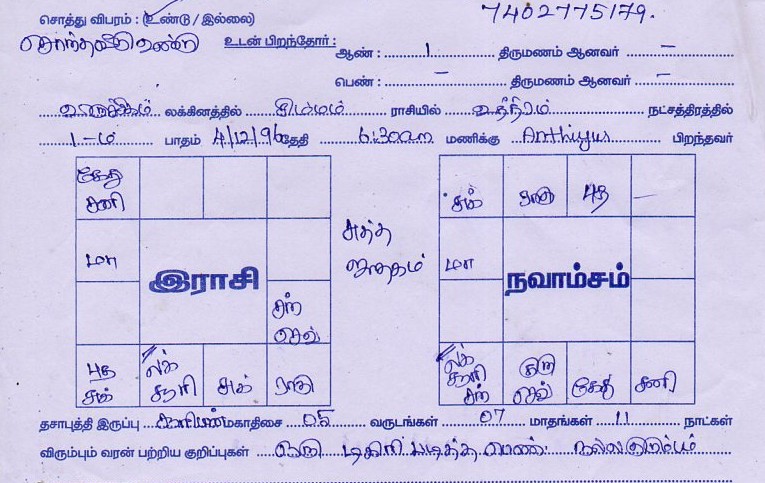 சொத்து விபரம் : (உண்டு / இல்லை) 7402775179.
சொந்தவீடு உண்டு உடன் பிறந்தோர் : ஆண் : 1 திருமணம் ஆனவர் –
பெண் : – திருமணம் ஆனவர் –
லக்கினத்தில் சிம்மம் ராசியில் உத்திரம் நட்சத்திரத்தில்
1-ம் பாதம் 4/12/96 தேதி 6:30am மணிக்கு Anthiyur பிறந்தவர்
கேது சனி
மா
இராசி
சந் செவ்
புத சுக் லக் சூரி சுக் ராகு
சுத்த ஜாதகம்
சுக் ராகு புத –
மா
நவாம்சம்
லக் சூரி சந் குரு செவ் கேது சனி
தசாபுத்தி இருப்பு சூரியன் மகாதிசை 05 வருடங்கள் 07 மாதங்கள் 11 நாட்கள்
விரும்பும் வரன் பற்றிய குறிப்புகள் டிகிரி படித்த பெண். நல்ல குடும்பம்